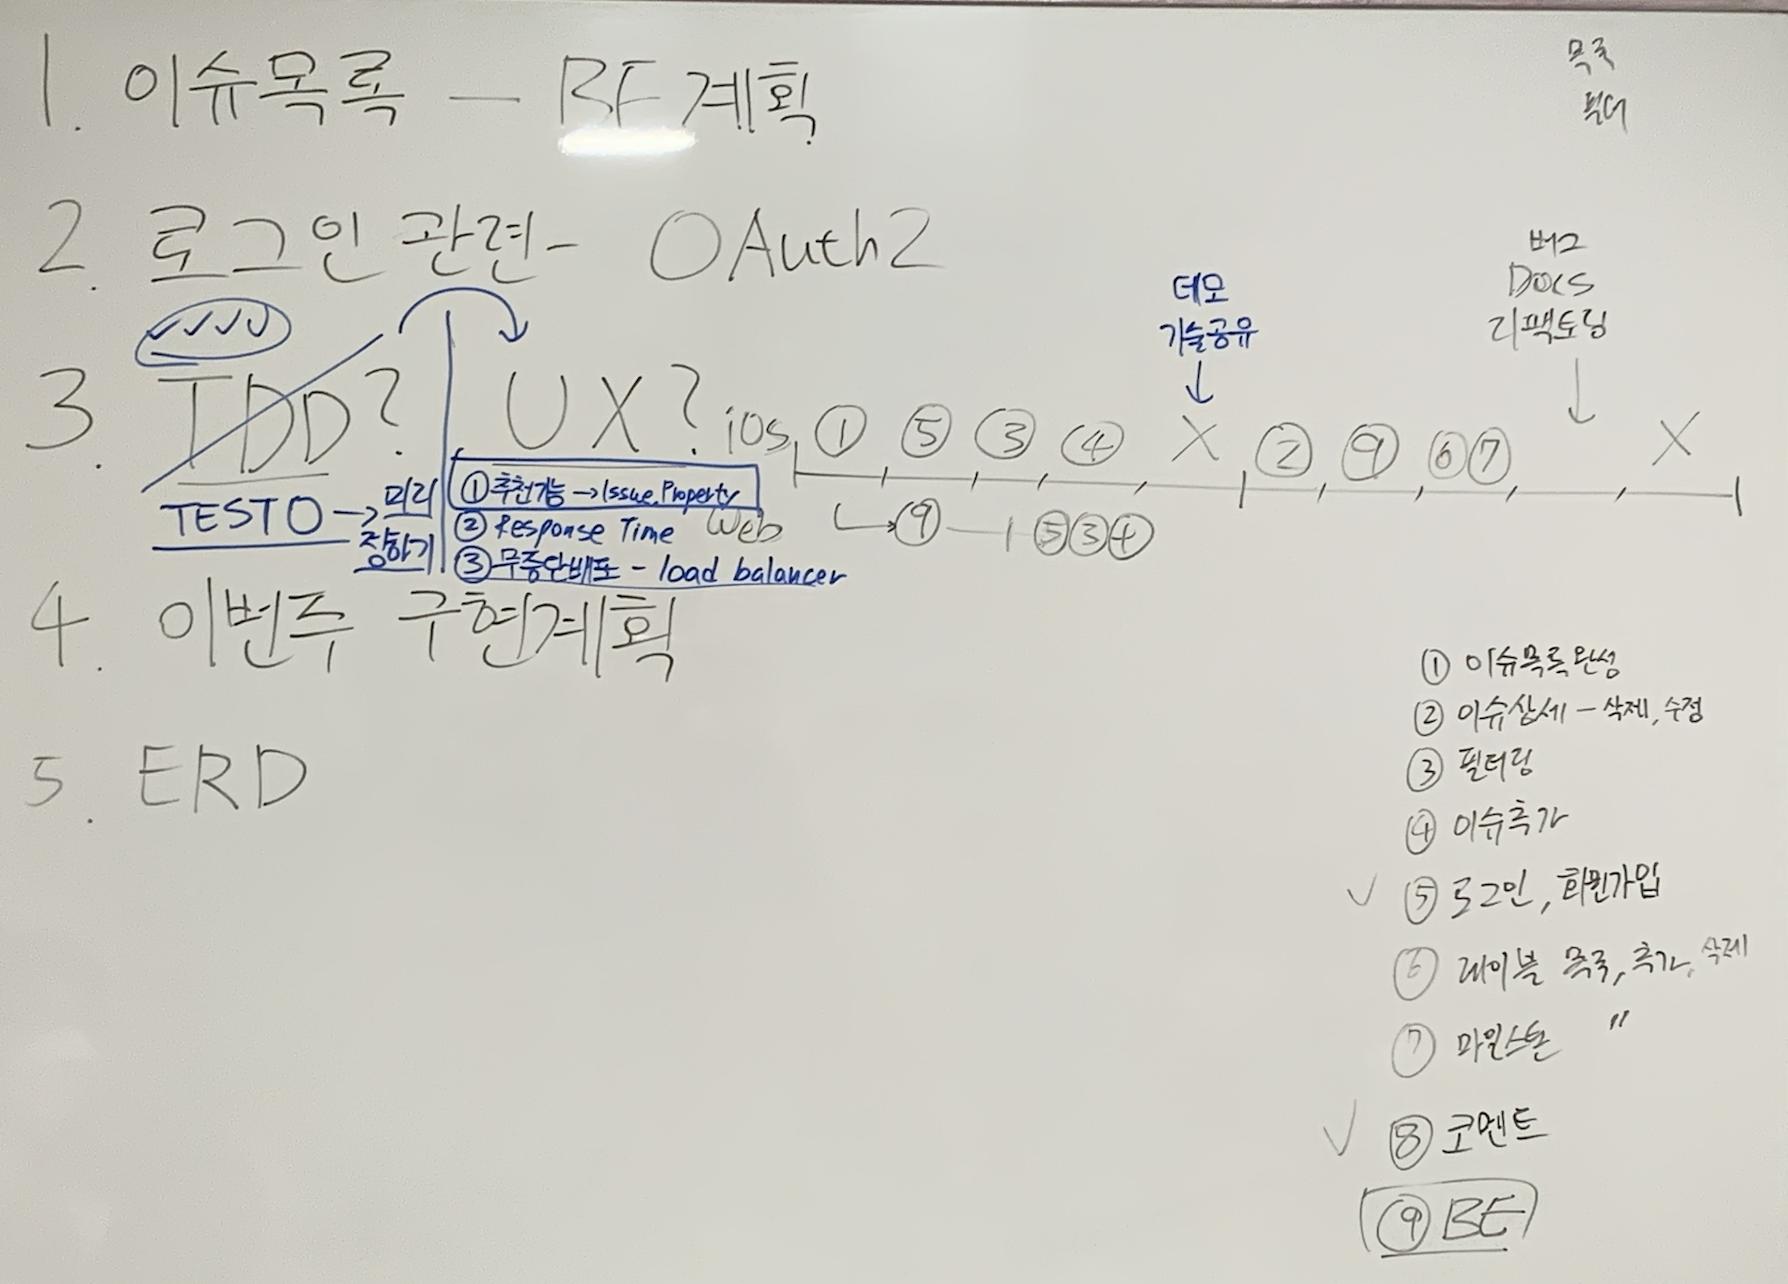 1. 이슈목록 — BE 계획
목록
필터
2. 로그인 관련 - OAuth2
버그
Docs
리팩토링
데모
기술공유
3. TDD? UX?
TESTO → 미리
정하기
① 추천기능 → Issue.Property
② Response Time
③ 무중단배포 - load balancer
iOS ① ⑤ ③ ④ X ② ⑨ ⑥ ⑦ X
Web ⑨ ⑤ ③ ④
4. 이번주 구현계획
5. ERD
① 이슈목록완성
② 이슈상세 - 삭제, 수정
③ 필터링
④ 이슈추가
✓ ⑤ 로그인, 회원가입
⑥ 레이블 목록, 추가, 삭제
⑦ 마일스톤 〃
✓ ⑧ 코멘트
⑨ BE